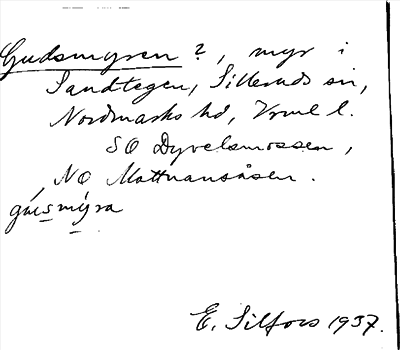 Gudsmyren?, myr i
Sandtegen, Sillerud sn,
Nordmarks hd, Vrml l.
SO Dyvelsmossen,
NO Mattnansåsen.
gúsmýra
E. Silfors 1937.